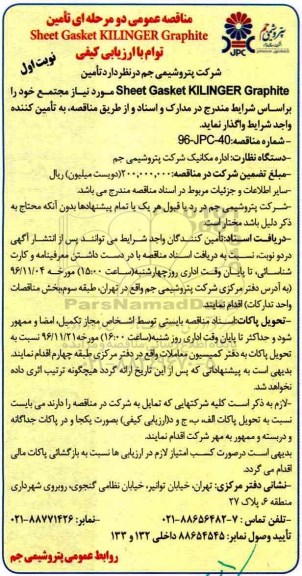 مناقصه عمومی دو مرحله ای تأمین
Sheet Gasket KILINGER Graphite
توام با ارزیابی کیفی
نوبت اول
JPC
شرکت پتروشیمی جم درنظر دارد تأمین
Sheet Gasket KILINGER Graphite مورد نیاز مجتمع خود را
براساس شرایط مندرج در مدارک و اسناد و از طریق مناقصه، به تأمین کننده
واجد شرایط واگذار نماید.
-شماره مناقصه:96-JPC-40
-دستگاه نظارت: اداره مکانیک شرکت پتروشیمی جم
-مبلغ تضمین شرکت در مناقصه:200,000,000(دویست میلیون) ریال
-سایر اطلاعات و جزئیات مربوط در اسناد مناقصه مندرج می باشد.
-شرکت پتروشیمی جم در رد یا قبول هر یک یا تمام پیشنهادها بدون آنکه محتاج به
ذکر دلیل باشد مختار است.
-دریافت اسناد:تأمین کنندگان واجد شرایط می توانند پس از انتشار آگهی
در دو نوبت، نسبت به دریافت اسناد مناقصه با در دست داشتن معرفینامه و کارت
شناسائی، تا پایان وقت اداری روز چهارشنبه(ساعت ۱۵:۰۰) مورخه ۹۶/۱۱/۰۴
(به آدرس دفتر مرکزی شرکت پتروشیمی جم واقع در تهران، طبقه سوم،بخش مناقصات
واحد تدارکات) اقدام نمایند.
-تحویل پاکات:اسناد مناقصه بایستی توسط اشخاص مجاز تکمیل، امضا و ممهور
شود و حداکثر تا پایان وقت اداری روز شنبه(ساعت ۱۶:۰۰) مورخه ۹۶/۱۱/۲۱ نسبت به
تحویل پاکات به دفتر کمیسیون معاملات واقع در دفتر مرکزی طبقه چهارم اقدام نمایند.
بدیهی است به پیشنهاداتی که پس از این تاریخ ارائه گردد هیچگونه ترتیب اثری داده
نخواهد شد.
-لازم به ذکر است کلیه شرکتهایی که تمایل به شرکت در مناقصه را دارند می بایست
نسبت به تحویل پاکات الف، ب، ج و د(ارزیابی کیفی) بصورت یکجا و در پاکات جداگانه
و دربسته و ممهور به مهر شرکت اقدام نمایند.
بدیهی است درصورت کسب امتیاز لازم در ارزیابی ها نسبت به بازگشائی پاکات مالی
اقدام می گردد.
-نشانی دفتر مرکزی: تهران، خیابان توانیر، خیابان نظامی گنجوی، روبروی شهرداری
منطقه ۶، پلاک ۲۷
-تلفن تماس : ۷-۸۸۶۵۶۴۸۲-۰۲۱ -نمابر: ۸۸۷۷۱۴۲۶-۰۲۱
تأیید وصول نمابر: ۸۸۶۵۴۵۴۵ داخلی ۱۳۲ و ۱۳۳
روابط عمومی پتروشیمی جم